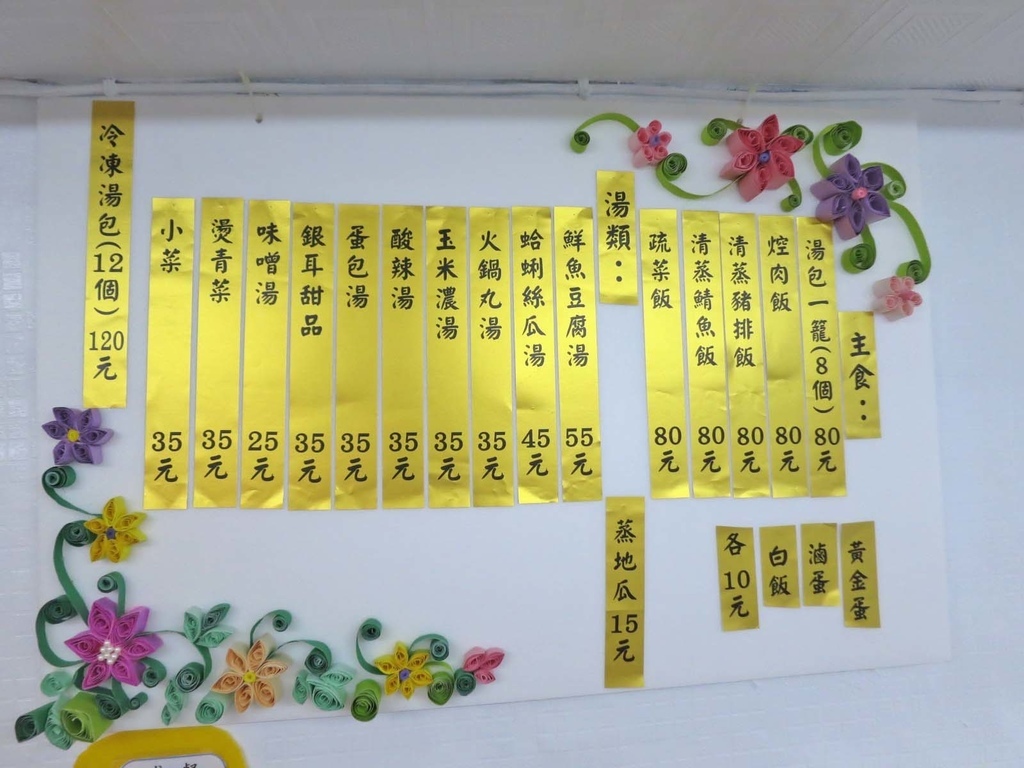 主食：
湯包一籠(8個) 80元
焢肉飯 80元
清蒸豬排飯 80元
清蒸鯖魚飯 80元
疏菜飯 80元
湯類：
鮮魚豆腐湯 55元
蛤蜊絲瓜湯 45元
火鍋丸湯 35元
玉米濃湯 35元
酸辣湯 35元
蛋包湯 35元
銀耳甜品 35元
味噌湯 25元
燙青菜 35元
小菜 35元
冷凍湯包(12個) 120元
黃金蛋
滷蛋
白飯
各10元
蒸地瓜 15元